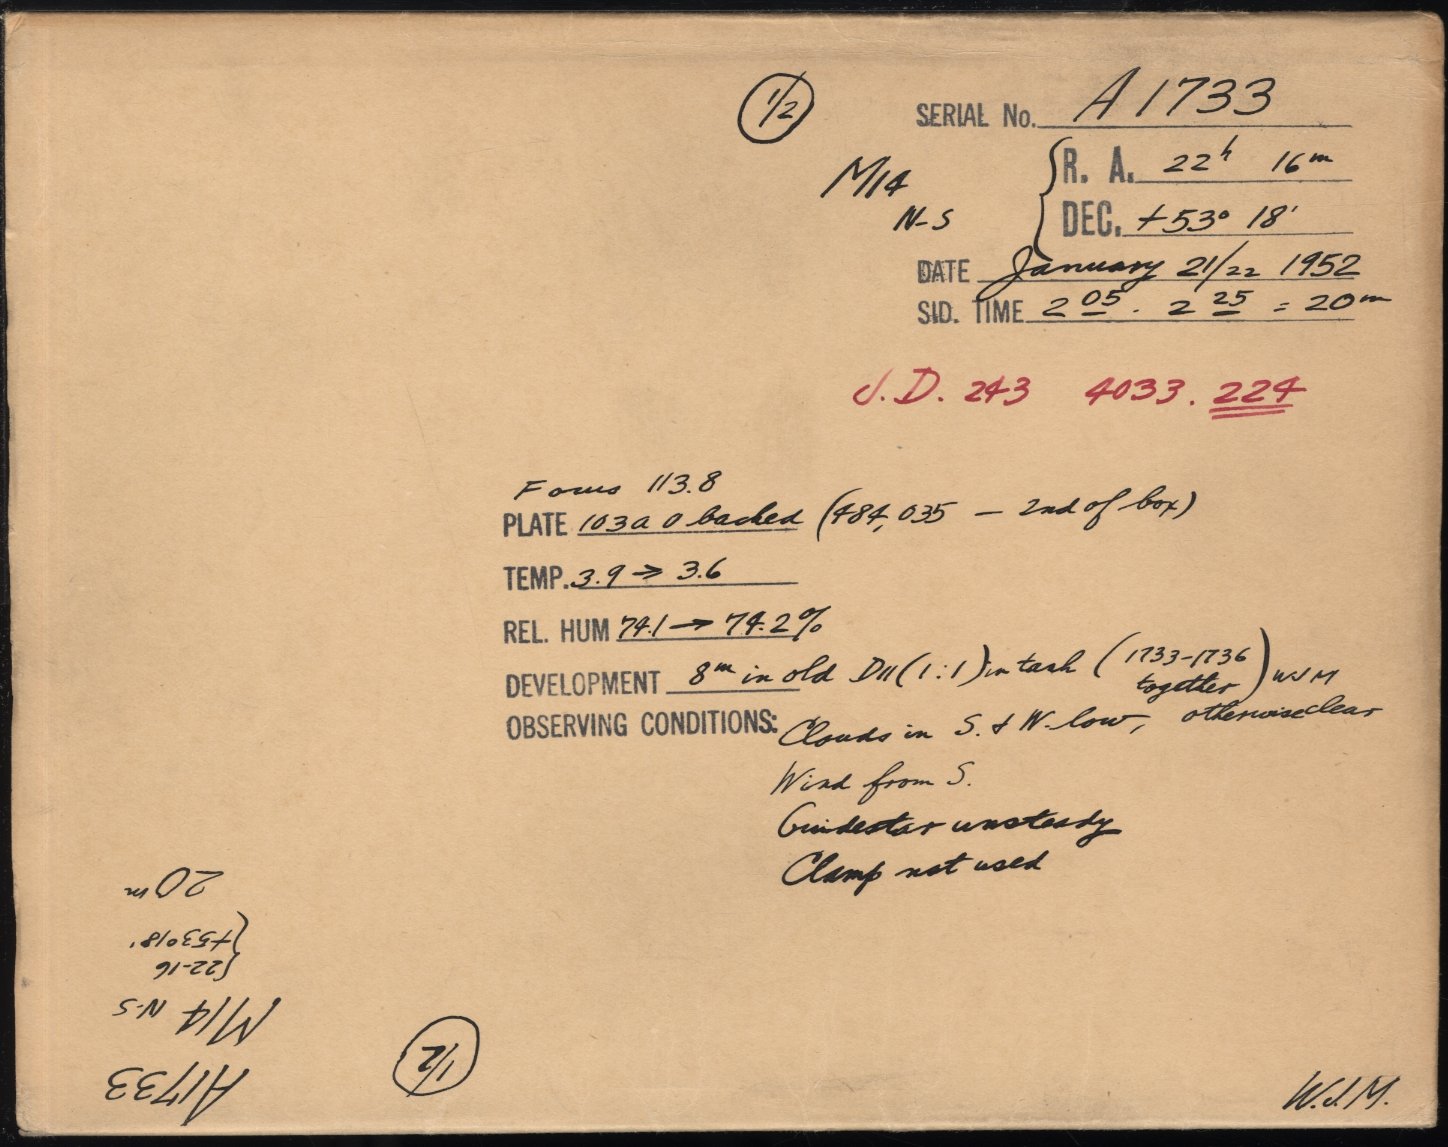 1/2
SERIAL No. A1733
M14
N-S
R. A. 22h 16m
DEC. +53° 18'
DATE January 21/22 1952
SID. TIME 2 05 . 2 25 = 20m
J.D. 243 4033.224
Focus 113.8
PLATE 103a O backed (484,035 – 2nd of box)
TEMP. 3.9 → 3.6
REL. HUM 74.1 → 74.2%
DEVELOPMENT 8m in old D11 (1:1) in tank (1733-1736 together) WJM
OBSERVING CONDITIONS: Clouds in S. & W. low, otherwise clear
Wind from S.
Guidestar unsteady
Clamp not used
A1733
M14 N-S
{22-16
{+53°18'
20m
1/2
W.J.M.